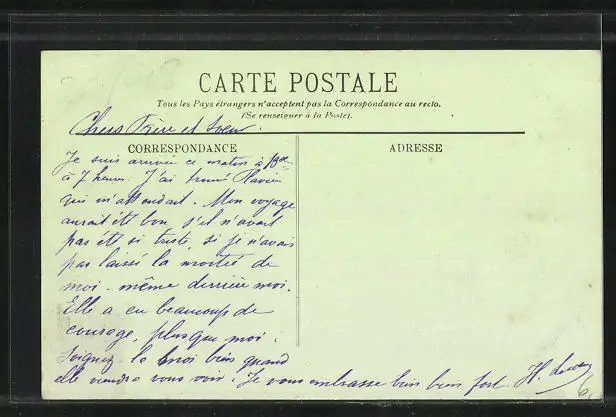 CARTE POSTALE
Tous les Pays étrangers n'acceptent pas la Correspondance au recto.
(Se renseigner à la Poste).
Chers Frère et Sœur.
CORRESPONDANCE
Je suis arrivée ce matin à
à 7 heures. J'ai trouvé Flavien
qui m'attendait. Mon voyage
aurait été bon, s'il n'avait
pas été si triste, si je n'avais
pas laissé la moitié de
moi-même derrière moi.
Elle a eu beaucoup de
courage, plus que moi.
Soignez-la moi bien quand
elle viendra vous voir. Je vous embrasse bien bien fort. H.
ADRESSE